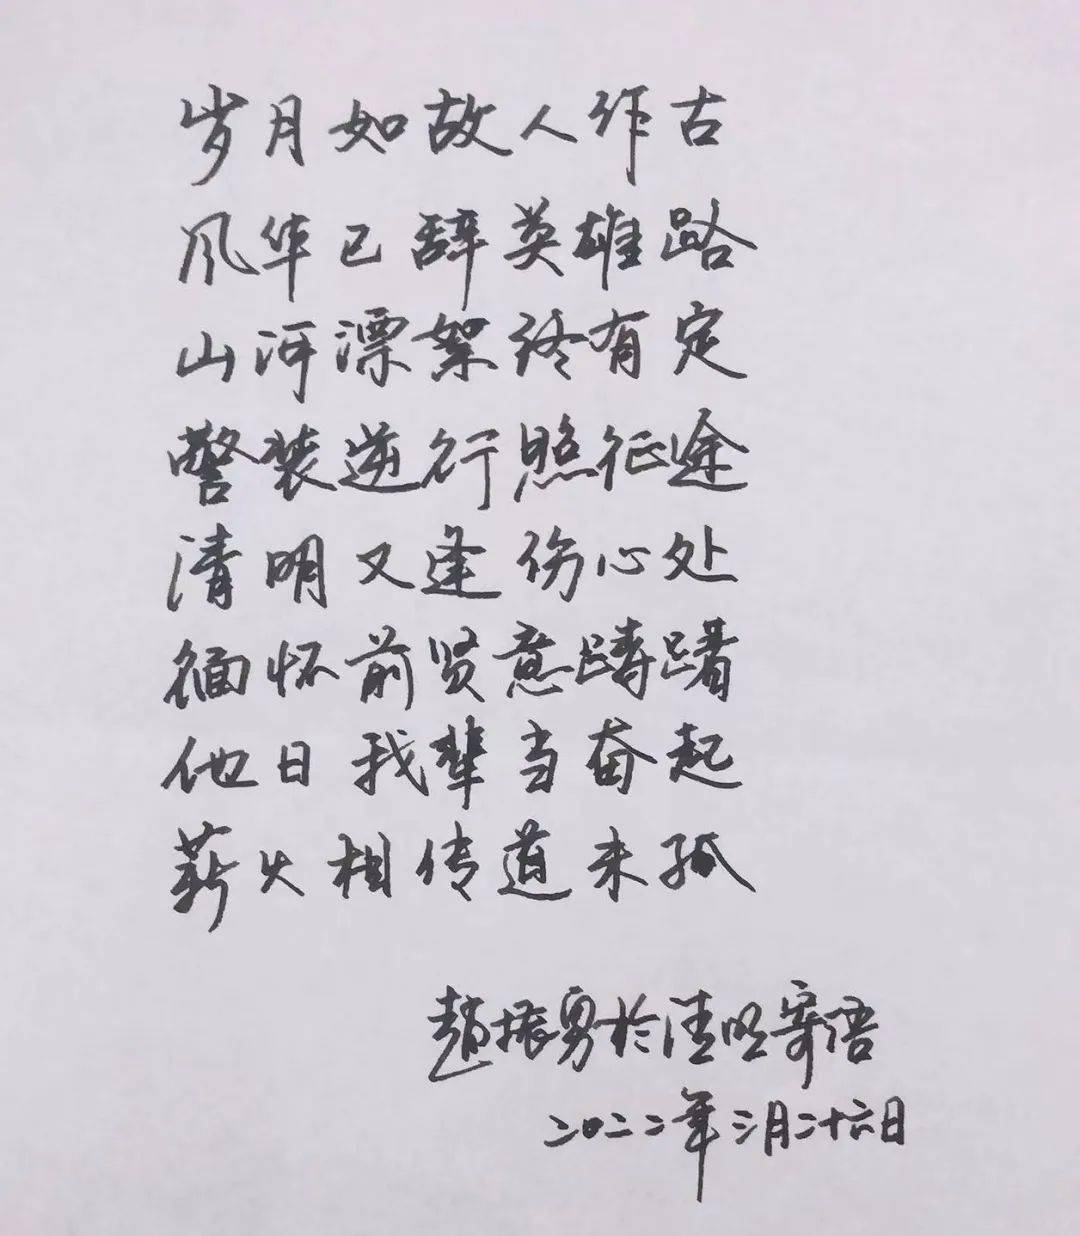 岁月如故人作古
风华已辞英雄路
山河漂絮终有定
警装逆行照征途
清明又逢伤心处
缅怀前贤意踌躇
他日我辈当奋起
薪火相传道未孤
赵振勇於清明寄语
二〇二二年三月二十六日